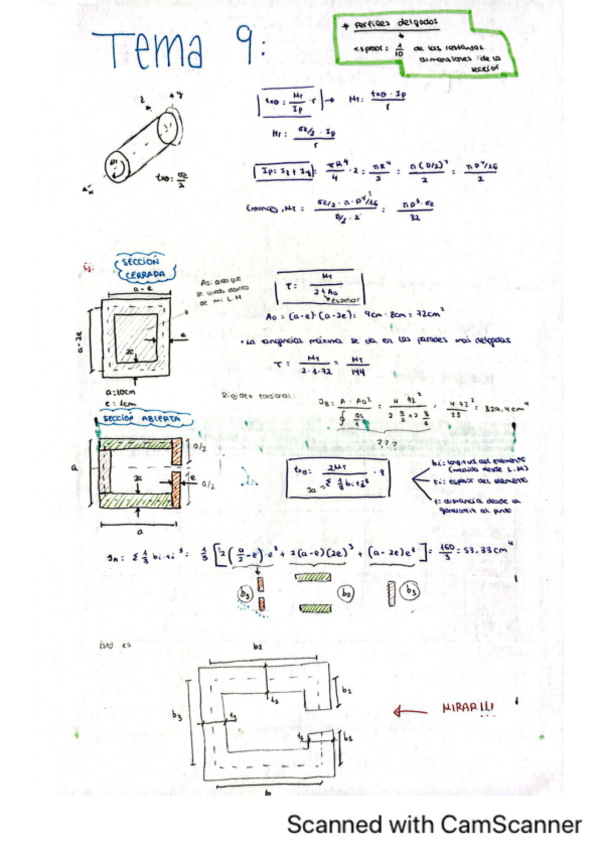 Tema 9:
* Perfiles delgados
espesor: 1/10 de las restantes
dimensiones de la
sección
MT
txθ = σe/2
txθ = MT/Ip · r → MT = txθ · Ip / r
MT = σe/2 · Ip / r
Ip = Iz + Iy = πR⁴/4 · 2 = πR⁴/2 = π(D/2)⁴/2 = πD⁴/16/2
Entonces, MT = σe/2 · π · D⁴/16 / D/2 · 2 = πD³ · σe / 32
Ej:
SECCIÓN
CERRADA
a - e
a - 2e
2e
e
a = 10cm
e = 1cm
A0: área que
se queda dentro
de mi L.M
τ = MT / 2 t A0
espesor
A0 = (a-e) · (a-2e) = 9cm · 8cm = 72cm²
• La tangencial máxima se da en las paredes más delgadas
τ = MT / 2·1·72 = MT / 144
Rigidez torsional:
= 329.4cm⁴
???
SECCIÓN ABIERTA
a/2
e
a/2
2e
a
a
2MT
bi: longitud del elemento
(medida desde L.M)
ti: espesor del elemento
distancia desde la
al punto
Ja = Σ 1/3 bi·ti³ = 1/3 [2(a/2 - e)·e³ + 2(a-e)(2e)³ + (a-2e)e³] = 160/3 = 53.33cm⁴
b1
b2
b3
Esto es
b2
b3
b1
t2
t3
t1
b1
← MIRAR!!!
Scanned with CamScanner